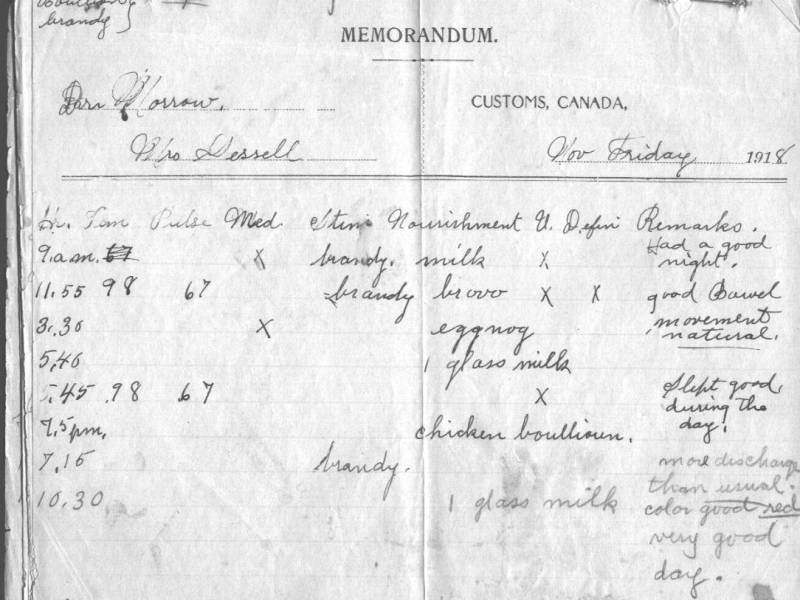 brandy}
MEMORANDUM.
Dr. Morrow.
CUSTOMS, CANADA,
Mrs Dessell
Nov Friday 1918
Hr. Tem Pulse Med Stim Nourishment U. Defin Remarks.
9.a.m. 67 X brandy. milk X Had a good night.
11.55 98 67 brandy brovo X X good Bowel
3.30 X eggnog movement natural.
5,40 1 glass milk
5.45 98 67 X Slept good during the day.
7.5pm. chicken boullioun.
7.15 brandy. more discharge
than usual.
10.30 1 glass milk color good red
very good
day.